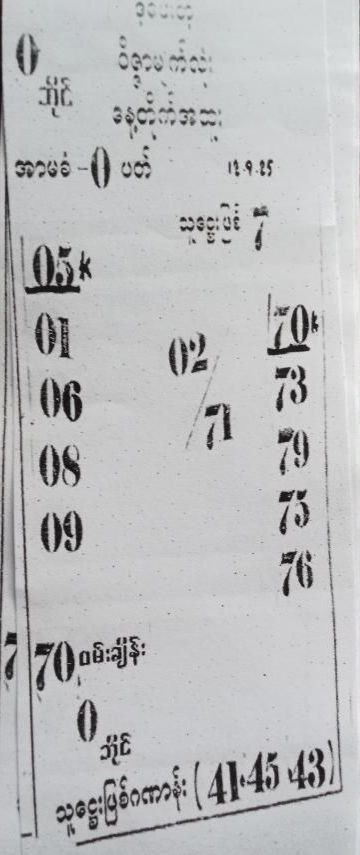 0
ဘိုင်
ဝိဇ္ဇာမှက်လုံး
နေ့တိုက်အထူး
အာမခံ - 0 ပတ်
12.9.25
သူဌေးဖြစ် 7
05k
01
06
08
09
02/71
70k
73
79
75
76
7
70 ဝမ်းချိန်း
0
ဘိုင်
သူဌေးဖြစ်ဂဏာန်း (41.45.43)